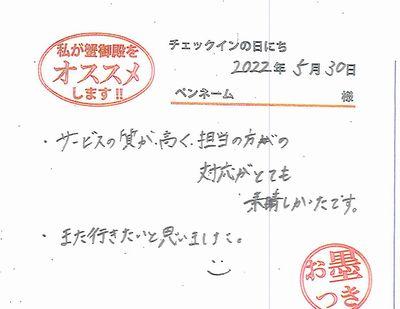 私が蟹御殿を
オススメ
します!!
チェックインの日にち
2022年5月30日
ペンネーム 様
・サービスの質が高く、担当の方がの
対応がとても
素晴しかったです。
・また行きたいと思いました。
お墨
つき